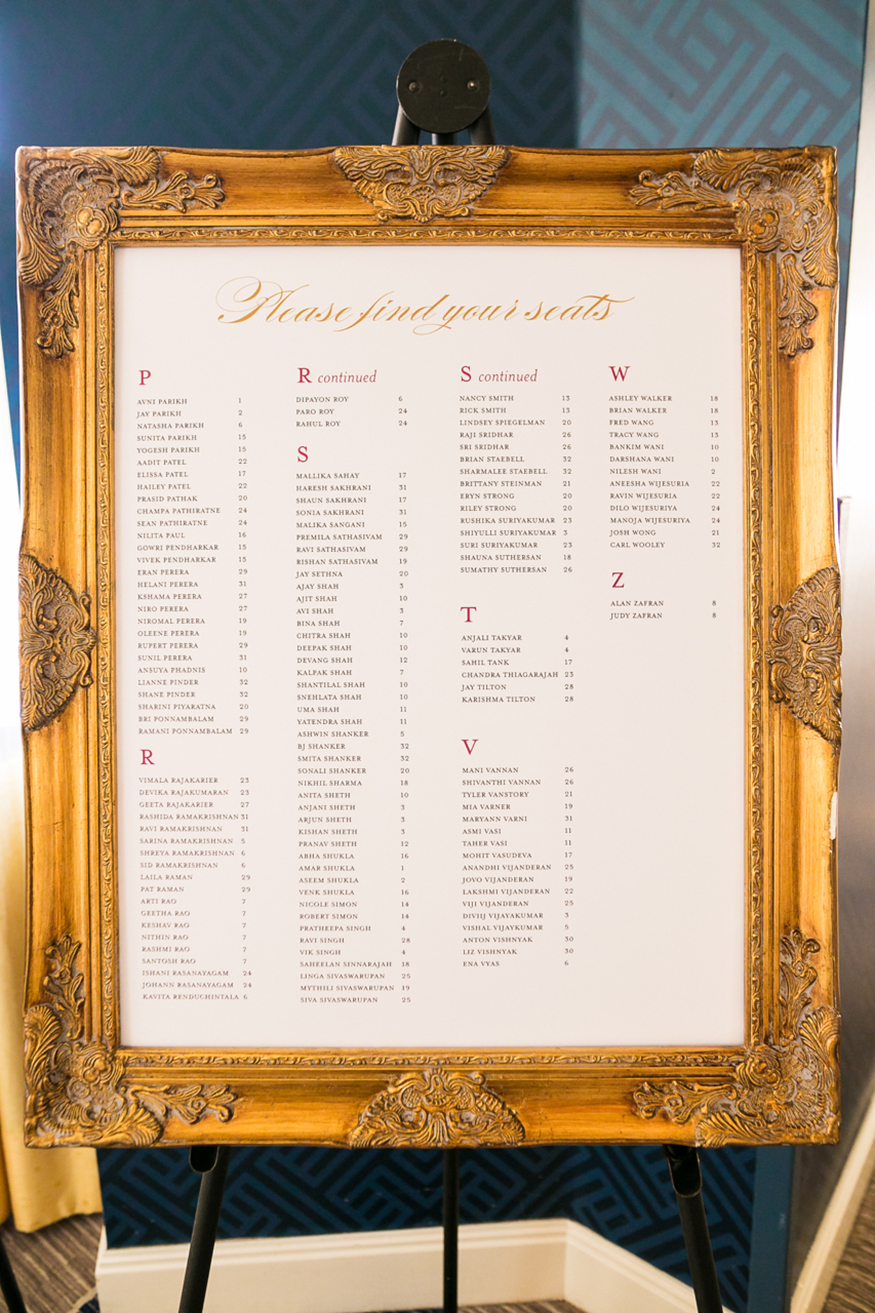 Please find your seats
P
AVNI PARIKH 1
JAY PARIKH 2
NATASHA PARIKH 6
SUNITA PARIKH 15
YOGESH PARIKH 15
AADIT PATEL 22
ELISSA PATEL 17
HAILEY PATEL 22
PRASID PATHAK 20
CHAMPA PATHIRATNE 24
SEAN PATHIRATNE 24
NILITA PAUL 16
GOWRI PENDHARKAR 15
VIVEK PENDHARKAR 15
ERAN PERERA 29
HELANI PERERA 31
KSHAMA PERERA 27
NIRO PERERA 27
NIROMAL PERERA 19
OLEENE PERERA 19
RUPERT PERERA 29
SUNIL PERERA 31
ANSUYA PHADNIS 10
LIANNE PINDER 32
SHANE PINDER 32
SHARINI PIYARATNA 20
BRI PONNAMBALAM 29
RAMANI PONNAMBALAM 29
R
VIMALA RAJAKARIER 23
DEVIKA RAJAKUMARAN 23
GEETA RAJAKARIER 27
RASHIDA RAMAKRISHNAN 31
RAVI RAMAKRISHNAN 31
SARINA RAMAKRISHNAN 5
SHREYA RAMAKRISHNAN 6
SID RAMAKRISHNAN 6
LAILA RAMAN 29
PAT RAMAN 29
ARTI RAO 7
GEETHA RAO 7
KESHAV RAO 7
NITHIN RAO 7
RASHMI RAO 7
SANTOSH RAO 7
ISHANI RASANAYAGAM 24
JOHANN RASANAYAGAM 24
KAVITA RENDUCHINTALA 6
R continued
DIPAYON ROY 6
PARO ROY 24
RAHUL ROY 24
S
MALLIKA SAHAY 17
HARESH SAKHRANI 31
SHAUN SAKHRANI 17
SONIA SAKHRANI 31
MALIKA SANGANI 15
PREMILA SATHASIVAM 29
RAVI SATHASIVAM 29
RISHAN SATHASIVAM 19
JAY SETHNA 20
AJAY SHAH 3
AJIT SHAH 10
AVI SHAH 3
BINA SHAH 7
CHITRA SHAH 10
DEEPAK SHAH 10
DEVANG SHAH 12
KALPAK SHAH 7
SHANTILAL SHAH 10
SNEHLATA SHAH 10
UMA SHAH 11
YATENDRA SHAH 11
ASHWIN SHANKER 5
BJ SHANKER 32
SMITA SHANKER 32
SONALI SHANKER 20
NIKHIL SHARMA 18
ANITA SHETH 10
ANJANI SHETH 3
ARJUN SHETH 3
KISHAN SHETH 3
PRANAV SHETH 12
ABHA SHUKLA 16
AMAR SHUKLA 1
ASEEM SHUKLA 2
VENK SHUKLA 16
NICOLE SIMON 14
ROBERT SIMON 14
PRATHEEPA SINGH 4
RAVI SINGH 28
VIK SINGH 4
SAHEELAN SINNARAJAH 18
LINGA SIVASWARUPAN 25
MYTHILI SIVASWARUPAN 19
SIVA SIVASWARUPAN 25
S continued
NANCY SMITH 13
RICK SMITH 13
LINDSEY SPIEGELMAN 20
RAJI SRIDHAR 26
SRI SRIDHAR 26
BRIAN STAEBELL 32
SHARMALEE STAEBELL 32
BRITTANY STEINMAN 21
ERYN STRONG 20
RILEY STRONG 20
RUSHIKA SURIYAKUMAR 23
SHIYULLI SURIYAKUMAR 3
SURI SURIYAKUMAR 23
SHAUNA SUTHERSAN 18
SUMATHY SUTHERSAN 26
T
ANJALI TAKYAR 4
VARUN TAKYAR 4
SAHIL TANK 17
CHANDRA THIAGARAJAH 23
JAY TILTON 28
KARISHMA TILTON 28
V
MANI VANNAN 26
SHIVANTHI VANNAN 26
TYLER VANSTORY 21
MIA VARNER 19
MARYANN VARNI 31
ASMI VASI 11
TAHER VASI 11
MOHIT VASUDEVA 17
ANANDHI VIJANDERAN 25
JOVO VIJANDERAN 19
LAKSHMI VIJANDERAN 22
VIJI VIJANDERAN 25
DIVIIJ VIJAYAKUMAR 3
VISHAL VIJAYKUMAR 5
ANTON VISHNYAK 30
LIZ VISHNYAK 30
ENA VYAS 6
W
ASHLEY WALKER 18
BRIAN WALKER 18
FRED WANG 13
TRACY WANG 13
BANKIM WANI 10
DARSHANA WANI 10
NILESH WANI 2
ANEESHA WIJESURIA 22
RAVIN WIJESURIA 22
DILO WIJESURIYA 24
MANOJA WIJESURIYA 24
JOSH WONG 21
CARL WOOLEY 32
Z
ALAN ZAFRAN 8
JUDY ZAFRAN 8